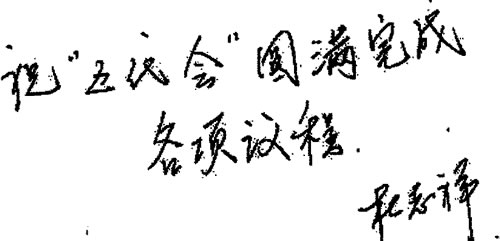 祝"五代会"圆满完成
各项议程.
杜志祥